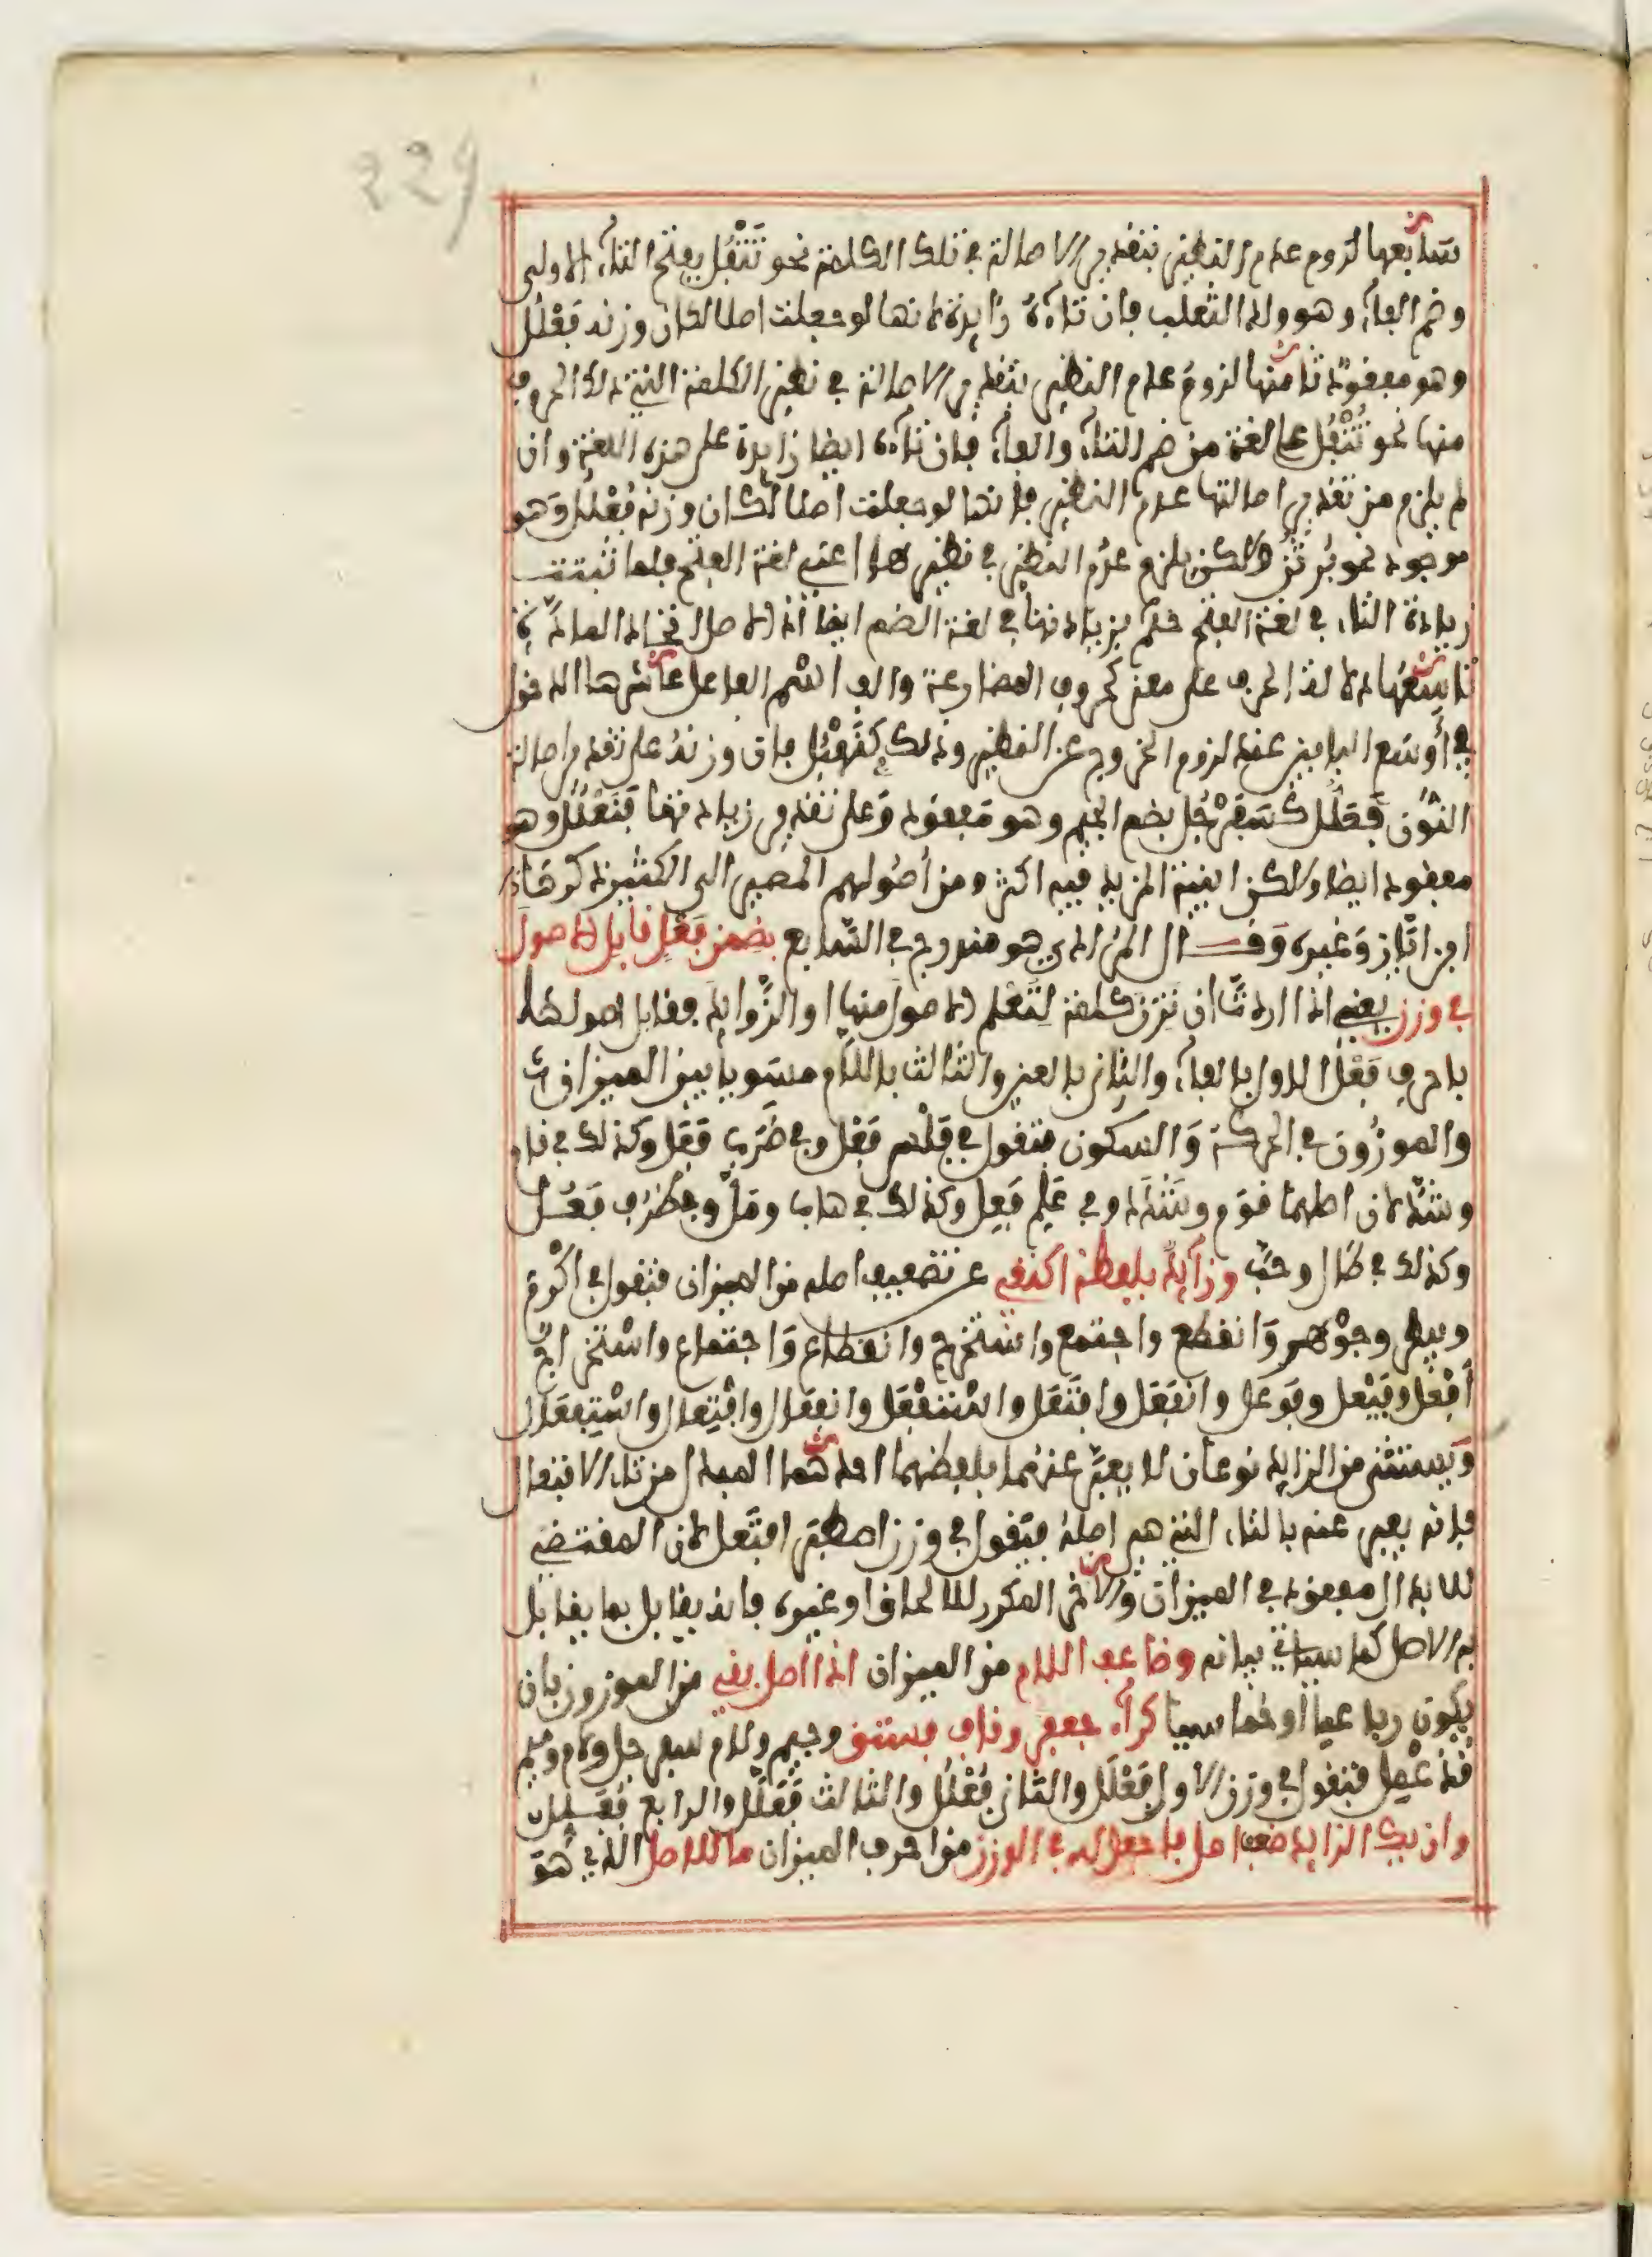 229
سابعها لزوم عدم النظير بتقدير الاصالة في تلك الكلمة نحو تَتْفُل بفتح التاء الاولى
وضم الفاء وهو ولد الثعلب فان تاءه زايدة لانها لو جعلت اصلا لكان وزنه فَعْلُل
وهو مفقود ثامنها لزوم عدم النظير بتقدير الاصالة في نظير الكلمة التي ذلك الحرف
منها نحو تُتْفُل على لغة من ضم التاء والفاء فان تاءه ايضا زايدة على هذه اللغة وان
لم يلزم من تقدير اصالتها عدم النظير فانها لو جعلت اصلا لكان وزنه فُعْلُل وهو
موجود نحو بُرْثُن ولاكن يلزم عدم النظير في نظيرها اعني لغة الفتح فلما ثبتت
زيادة التاء في لغة الفتح حكم بزيادتها في لغة الضم ايضا اذ الاصل اتحاد المادة
تاسعها دلالة الحرف على معنى كحروف المضارعة والف اسم الفاعل عاشرها الدخول
في أوسع البابين عند لزوم الخروج عن النظير وذلك كنَهْبُل فان وزنه على تقدير اصالة
النون فَعَلُّل كسَفَرْجُل بضم الجيم وهو مفقود وعلى تقدير زيادتها فَنَعْلُل وهو
مفقود ايضا ولاكن ابنية المزيد فيه اكثر ومن أصولهم المصير الى الكثير ذكر هاذا
ابن ايّاز وغيره وقال المرادي هو مندرج في السابع بضمن فعل قابل الاصول
في وزن يعني اذا اردت ان تزن كلمة لتعلم الاصول منها والزوايد فقابل اصولها
باحرف فعل الاول بالفاء والثاني بالعين والثالث باللام مسويا بين الميزان
والموزون في الحركة والسكون فتقول في فَلْس فَعْل وفي ضَرَب فَعَل وكذلك في قام
وشدّ لان اصلهما قوم وشدد وفي عَلِم فَعِل وكذلك في هاب ومَلّ وفي ظرُف فَعُل
وكذلك في طال وحبّ وزايدٌ بلفظه اكتفي عن تضعيف اصله من الميزان فتقول في اكْرم
وبيطر وجوْهر وانقطع واجتمع واستخرج وانقطاع واجتماع واستخراج
أفْعل وفَيْعل وفوعل وانفَعَل وافتَعَل واسْتَفْعَل وانفعال وافتِعال واستِفعال
ويستثنى من الزايد نوعان لا يعبّر عنهما بلفظهما احدهما المبدل من تاء الافتعال
فانه يعبر عنه بالتاء التي هي اصله فيقول في وزن اصطبر افتعل لان المقتضي
للابدال مفقود في الميزان والاخر المكرر للالحاق او غيره فانه يقابل بما يقابل
به الاصل كما سياتي بيانه وضاعف اللام من الميزان اذا اصل بقي من الموزون بان
يكون رباعيا أو خماسيا كراء جعفر وقاف فستق وجيم ولام سفرجل ولام وميم
قذعمل فتقول في وزن الاول فَعْلَل والثاني فُعْلُل والثالث فَعَلَّل والرابع فُعَلِّل
وان يك الزايد ضعف اصل فاجعل له في الوزن من احرف الميزان ما للاصل الذي هُوَ